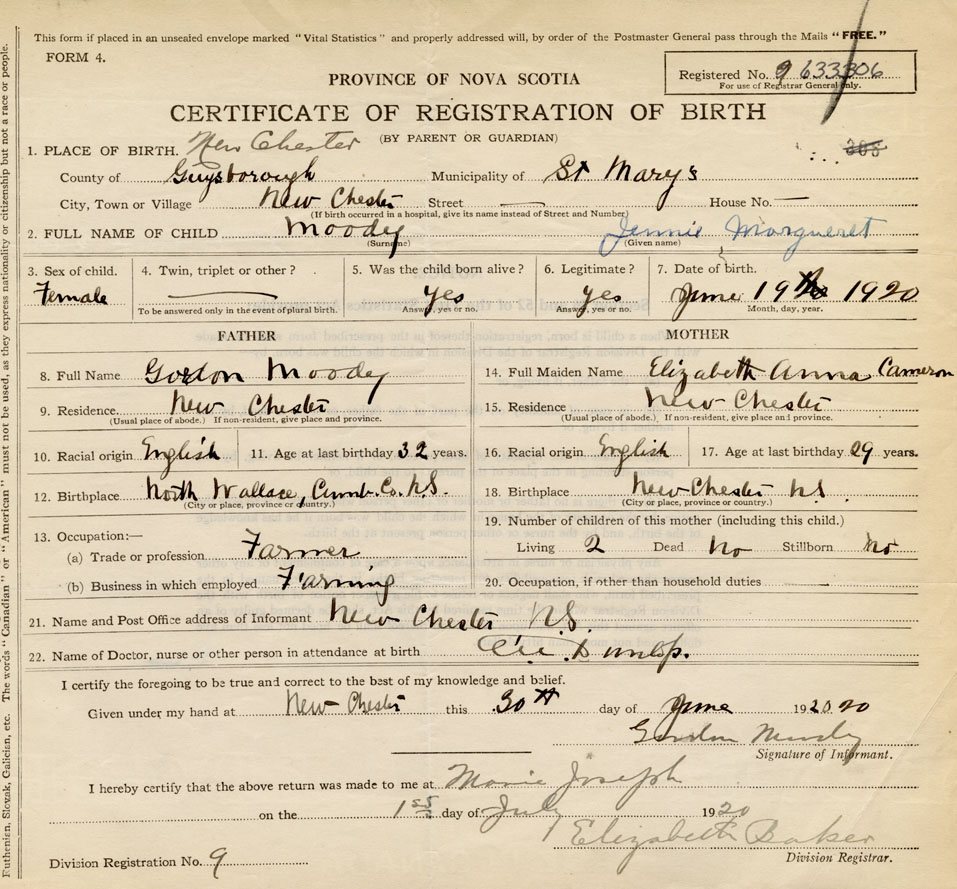 This form if placed in an unsealed envelope marked "Vital Statistics" and properly addressed will, by order of the Postmaster General pass through the Mails "FREE."
FORM 4.
Registered No. 9 633306
For use of Registrar General only.
PROVINCE OF NOVA SCOTIA
CERTIFICATE OF REGISTRATION OF BIRTH
(BY PARENT OR GUARDIAN)
305
1. PLACE OF BIRTH. New Chester
County of Guysborough Municipality of St Mary's
City, Town or Village New Chester Street — House No. —
(If birth occurred in a hospital, give its name instead of Street and Number)
2. FULL NAME OF CHILD Moody Jennie Margueret
(Surname) (Given name)
3. Sex of child. 4. Twin, triplet or other? 5. Was the child born alive? 6. Legitimate? 7. Date of birth.
Female — yes yes June 19th 1920
To be answered only in the event of plural birth. Answer, yes or no. Answer, yes or no. Month, day, year.
FATHER MOTHER
8. Full Name Gordon Moody 14. Full Maiden Name Elizabeth Anna Cameron
9. Residence New Chester 15. Residence New Chester
(Usual place of abode.) If non-resident, give place and province. (Usual place of abode.) If non-resident, give place and province.
10. Racial origin English 11. Age at last birthday 32 years. 16. Racial origin English 17. Age at last birthday 29 years.
12. Birthplace North Wallace, Cumb. Co. N.S. 18. Birthplace New Chester N.S.
(City or place, province or country.) (City or place, province or country.)
13. Occupation:— 19. Number of children of this mother (including this child.)
(a) Trade or profession Farmer Living 2 Dead No Stillborn No
(b) Business in which employed Farming 20. Occupation, if other than household duties —
21. Name and Post Office address of Informant New Chester N.S.
22. Name of Doctor, nurse or other person in attendance at birth Dunlop.
I certify the foregoing to be true and correct to the best of my knowledge and belief.
Given under my hand at New Chester this 30th day of June 1920 20
Gordon Moody
Signature of Informant.
I hereby certify that the above return was made to me at Marie Joseph
on the 1st day of July 1920
Elizabeth Baker
Division Registrar.
Division Registration No. 9
Ruthenian, Slovak, Galician, etc. The words "Canadian" or "American" must not be used, as they express nationality or citizenship but not a race or people.